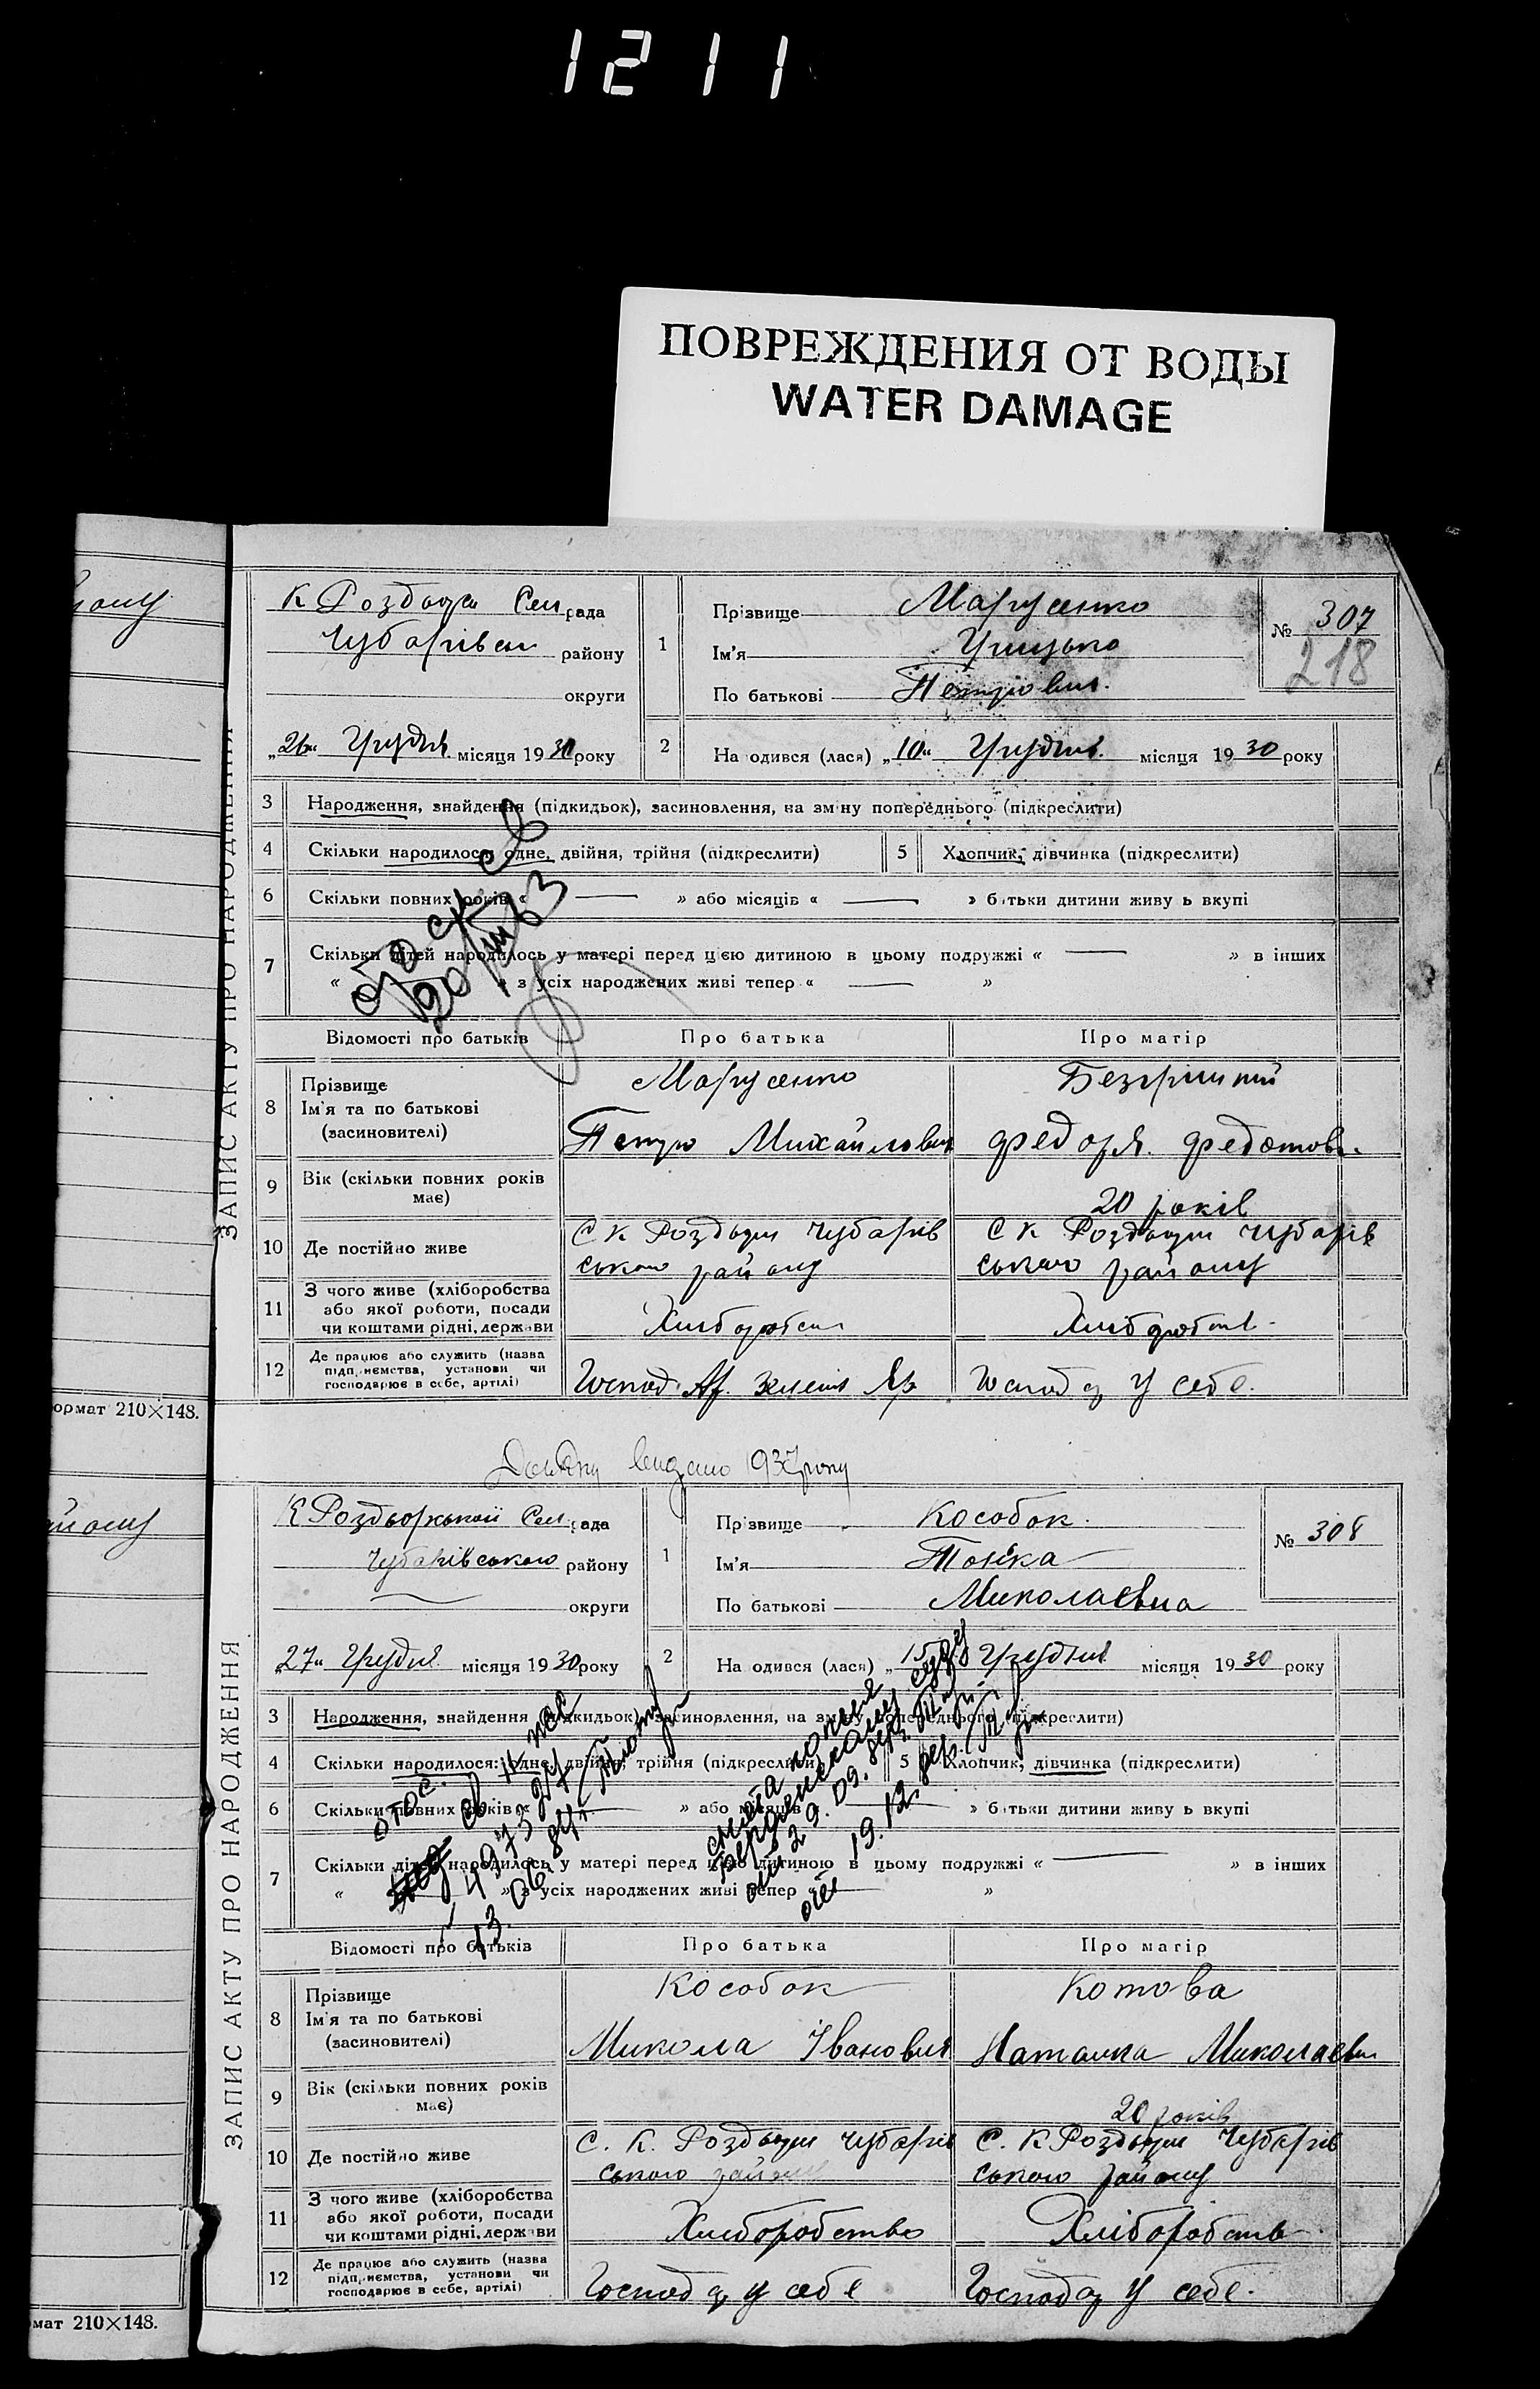 1211
ПОВРЕЖДЕНИЯ ОТ ВОДЫ
WATER DAMAGE
ЗАПИС АКТУ ПРО НАРОДЖЕННЯ
К Роздори Сел рада
Чубарівськ району
округи
„26“ Грудня місяця 1930 року
1
Прізвище Марусенко
Ім'я Грицько
По батькові Петрович.
№ 307
218
2
На одився (лася) „10“ Грудня місяця 1930 року
3 Народження, знайдення (підкидьок), засиновлення, на зміну попереднього (підкреслити)
4 Скільки народилося: одне, двійня, трійня (підкреслити)
5 Хлопчик, дівчинка (підкреслити)
6 Скільки повних років « — » або місяців « — » батьки дитини живу ь вкупі
7 Скільки дітей народилось у матері перед цією дитиною в цьому подружжі « — » в інших
« » з усіх народжених живі тепер « — »
Відомості про батьків Про батька Про матір
8 Прізвище
Ім'я та по батькові
(засиновителі)
Марусенко
Петро Михайлович
Федора Федотовн.
9 Вік (скільки повних років має)
20 років
10 Де постійно живе
С К Роздори Чубарів
ського району
С К Роздори Чубарів
ського району
11 З чого живе (хліборобства
або якої роботи, посади
чи коштами рідні, держави
Хліборобств
Хліборобств
12 Де працює або служить (назва
підприємства, установи чи
господарює в себе, артілі)
Господ
Господ у себе.
ормат 210×148.
Довідку видано 1937 року
ЗАПИС АКТУ ПРО НАРОДЖЕННЯ
К Роздорської Сел. рада
Чубарівського району
округи
„27“ Грудня місяця 1930 року
1
Прізвище Кособок.
Ім'я Тонька
По батькові Миколаєвна
№ 308
2
На одився (лася) „15“ Грудня місяця 1930 року
3 Народження, знайдення (підкидьок), засиновлення, на зміну попереднього (підкреслити)
4 Скільки народилося: одне, двійня, трійня (підкреслити)
5 Хлопчик, дівчинка (підкреслити)
6 Скільки повних років « — » або місяців « — » батьки дитини живу ь вкупі
7 Скільки дітей народилось у матері перед цією дитиною в цьому подружжі « — » в інших
« » з усіх народжених живі тепер « — »
13.06.84
Відомості про батьків Про батька Про матір
8 Прізвище
Ім'я та по батькові
(засиновителі)
Кособок
Микола Іванович
Котова
Наталка Миколаєвн
9 Вік (скільки повних років має)
20 років
10 Де постійно живе
С. К. Роздори Чубарів
ського району
С. К Роздори Чубарів
ського району
11 З чого живе (хліборобства
або якої роботи, посади
чи коштами рідні, держави
Хліборобство
Хліборобств
12 Де працює або служить (назва
підприємства, установи чи
господарює в себе, артілі)
Господ у себе
Господ у себе.
мат 210×148.